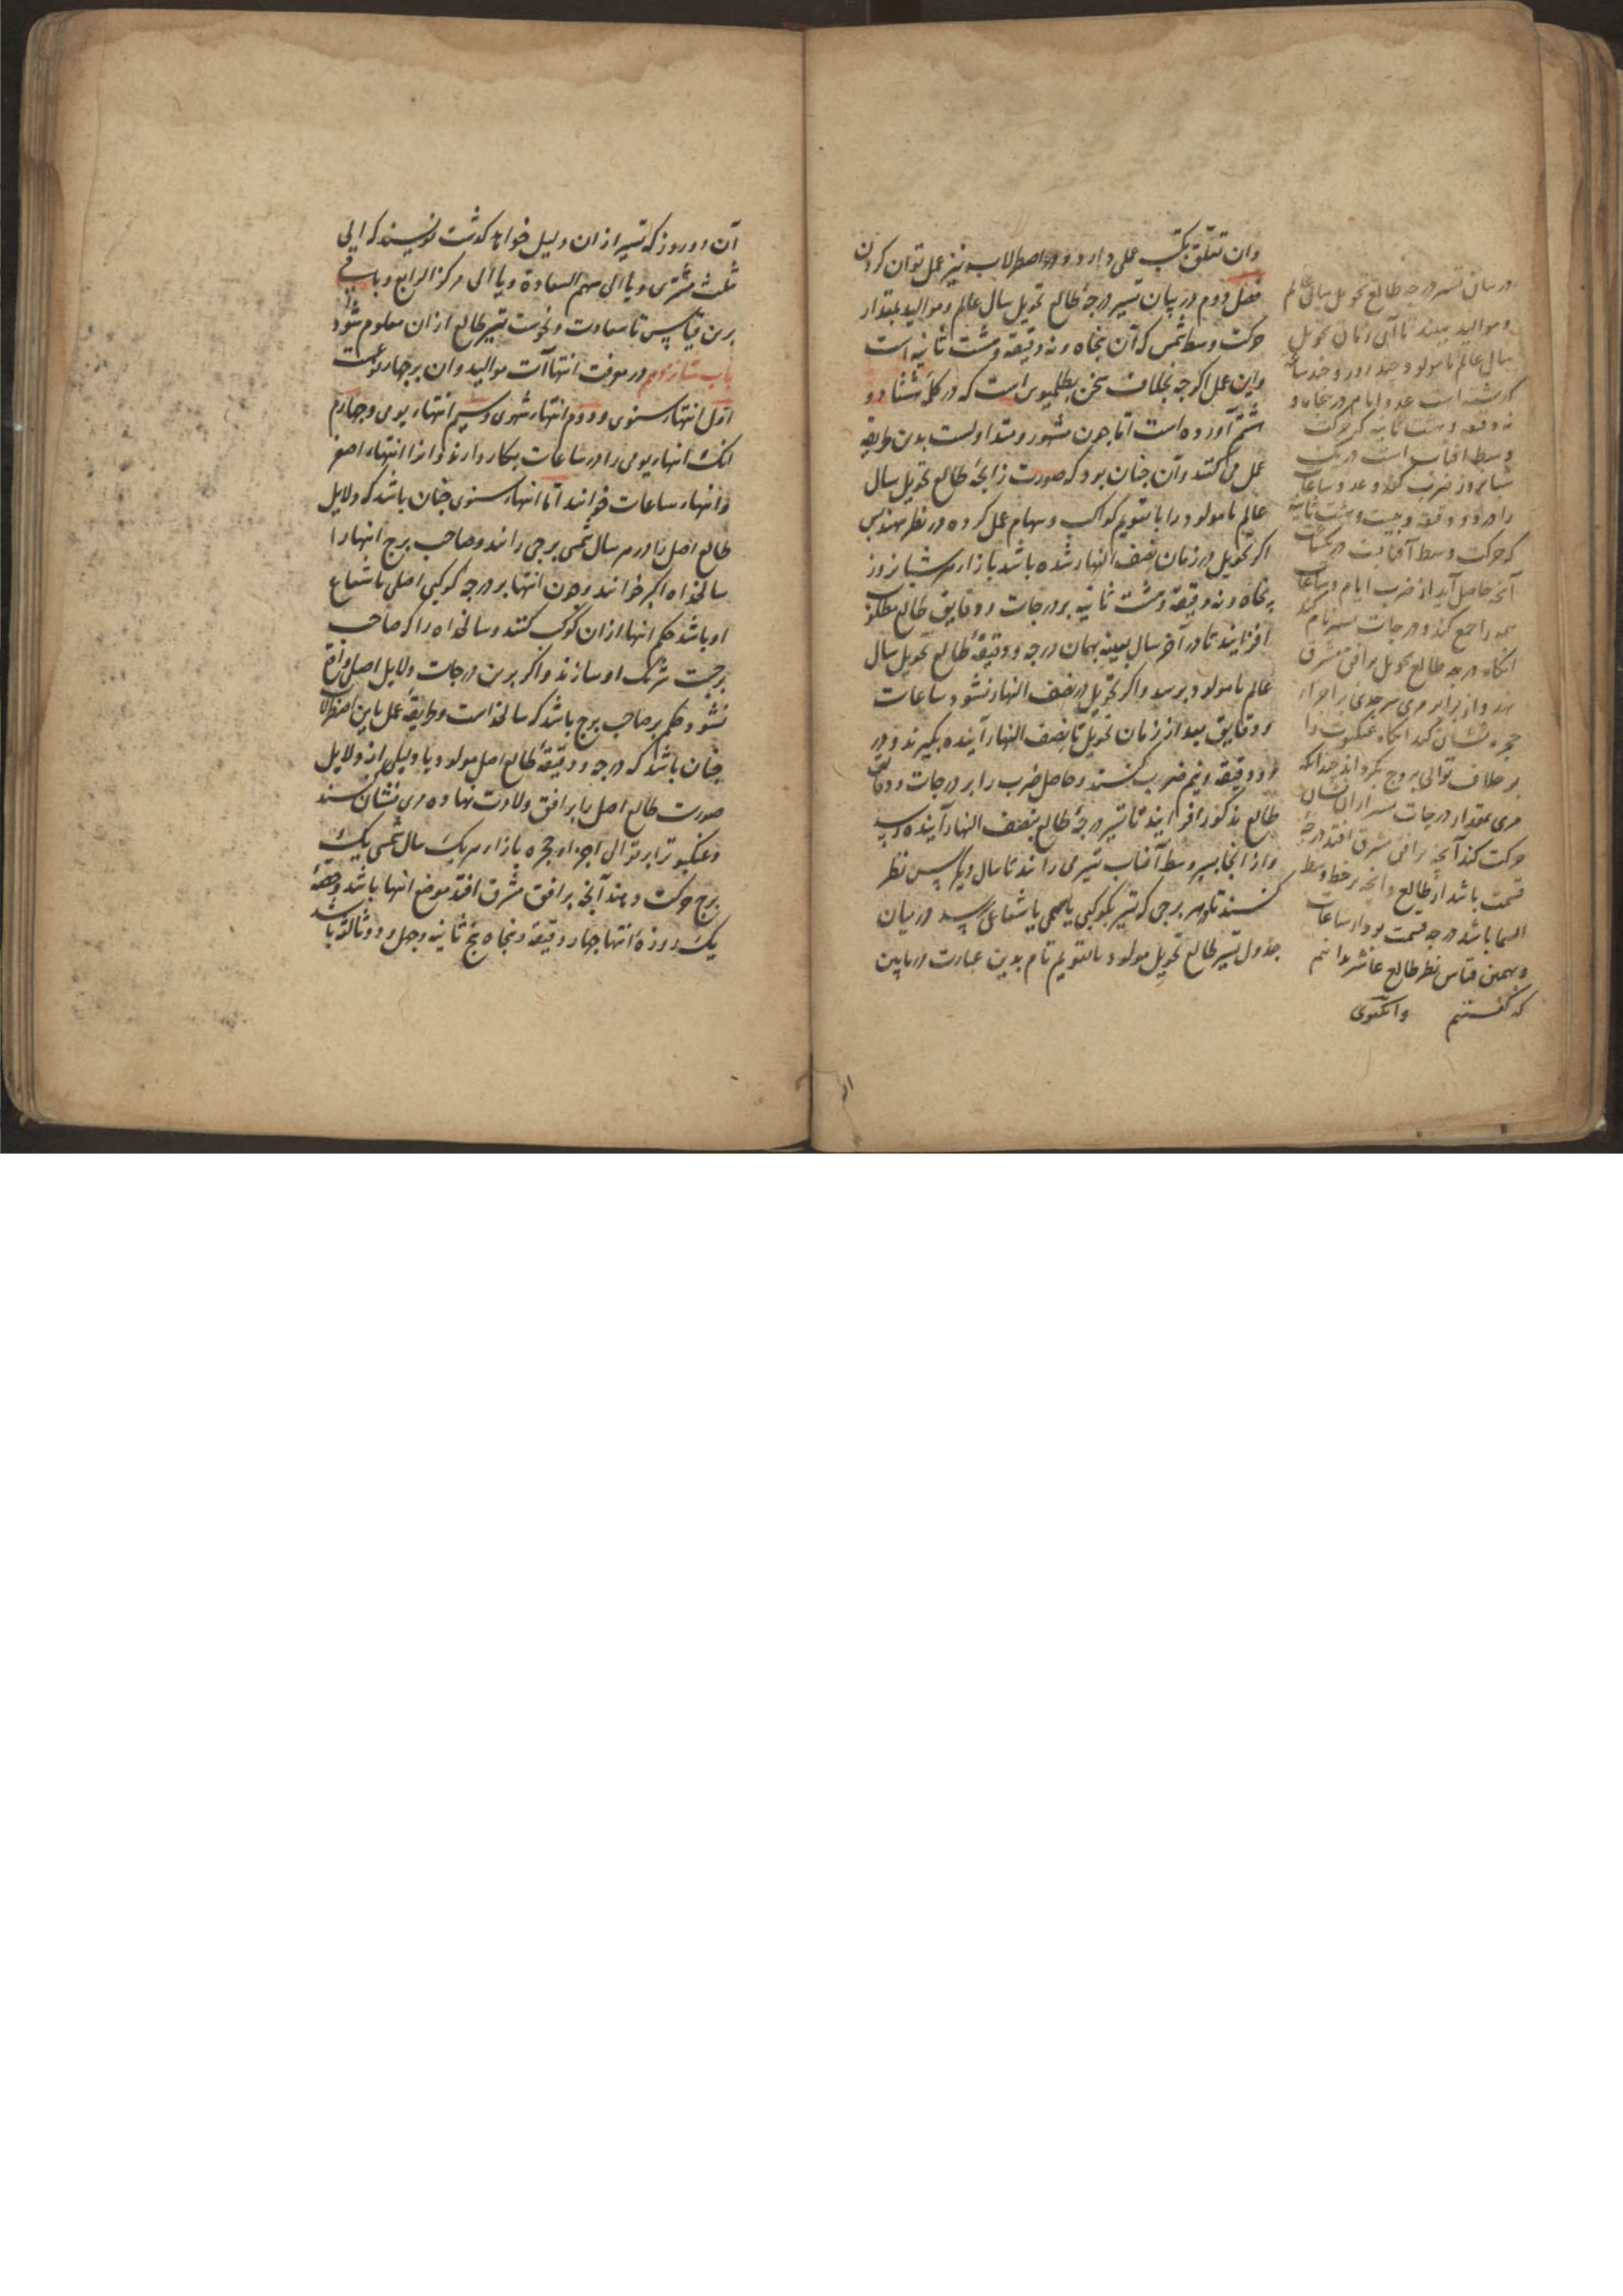 وان تعلق بکتب عملی دارد و در اصطرلاب نیز عمل توان کردن
فصل دوم در بیان تسییر درجهٔ طالع تحویل سال عالم و موالید بمقدار
حرکت وسط شمس که آن پنجاه و نه دقیقه و هشت ثانیه است
واین عمل اکرچه بخلاف سخن بطلمیوس است که در کلمهٔ هشتاد و
هشتم آورده است اما چون مشهور و متداولست بدین طریقه
عمل می کنند وآن چنان بود که صورت زایجهٔ طالع تحویل سال
عالم یا مولود را با تقویم کواکب و سهام عمل کرده در نظر مهندس
اکر تحویل در زمان نصف النهار شده باشد بازاء هر شبانروز
پنجاه و نه دقیقه و هشت ثانیه بر درجات و دقایق طالع
افزایند تا در آخر سال بعینه بهمان درجه و دقیقهٔ طالع تحویل سال
عالم یا مولود برسد واکر تحویل در نصف النهار نشود ساعات
و دقایق بعد از زمان تحویل تا نصف النهار آینده بکیرند و در
دو دقیقه و نیم ضرب کنند و حاصل ضرب را بر درجات و دقایق
طالع مذکور افزایند تا تسییر درجهٔ طالع بنصف النهار آینده رسد
و از انجا بسیر وسط آفتاب تسییر می رانند تا سال دیکر پس نظر
کنند تا بهر برجی که تسییر بکوکبی یا سهمی یا شعاعی برسد در میان
جدول تسییر طالع تحویل مولود بالتقویم تام بدین عبارت در پایین
در بیان تسییر درجهٔ طالع تحویل سال عالم
و موالید ببیند تا آن زمان تحویل
سال عالم یا مولود چند روز و چند ساعت
کذشته است عدد ایام در پنجاه و
نه دقیقه و هشت ثانیه که حرکت
وسط آفتاب است در یک
شبانروز ضرب کند و عدد ساعات
را در دو دقیقه و بیست و هشت ثانیه
که حرکت وسط آفتابست در یکساعت
آنچه حاصل آید از ضرب ایام و ساعات
همه را جمع کند و درجات تسییر نام کند
انکاه درجه طالع تحویل بر افق مشرق
نهد و از برابر مری سر جدی را از اجزاء
حجره نشان کند انکاه عنکبوت را
بر خلاف توالی بروج بکرداند چندانکه
مری بمقدار درجات تسییر از ان نشان
حرکت کند آنچه بر افق مشرق افتد درجهٔ
قسمت باشد از طالع و انچه بر خط وسط
السما باشد درجه قسمت بود از ساعات
و بهمین قیاس نظر طالع عاشر بدانیم
که کفتیم
آن دو روز که تسییر از ان دلیل خواهد کذشت نویسند که الی
تثلیث مشتری و یا الی سهم السعادة و یا الی مرکز الرابع و باقی
برین قیاس تا سعادت و نحوست تسییر طالع از ان معلوم شود
باب شانزدهم در معرفت انتهاآت موالید وان بر چهار نوعست
اول انتهاء سنوی و دوم انتهاء شهوی و سیم انتهاء یومی و چهارم
انک انتهاء یومی را در ساعات بکار دارند و انرا انتهاء اصغر
و انتهاء ساعات خوانند اما انتهاء سنوی چنان باشد که دلایل
طالع اصل را در هر سال شمسی برجی رانند و صاحب برج انتها را
سالخداه اکبر خوانند و چون انتها بر درجه کوکبی اصلی یا شعاع
او باشد حکم انتها از ان کوکب کنند و سالخداه را که صاحب
برجست شریک او سازند و اکر برین درجات دلایل اصلی واقع
نشود حکم بر صاحب برج باشد که سالخداست وطریقهٔ عمل باین اصطرلاب
چنان باشد که درجه و دقیقهٔ طالع اصل مولود و یا دلیلی از دلایل
صورت طالع اصل را بر افق ولادت نهاده مری نشان کنند
و عنکبوت را بر توالی اجزاء حجره بازاء هر یک سال شمسی یک
برج حرکت دهند آنچه بر افق مشرق افتد موضع انتها باشد وحصهٔ
یک روزهٔ انتها چهار دقیقه و پنجاه و پنج ثانیه و چهل و دو ثالثه باشد